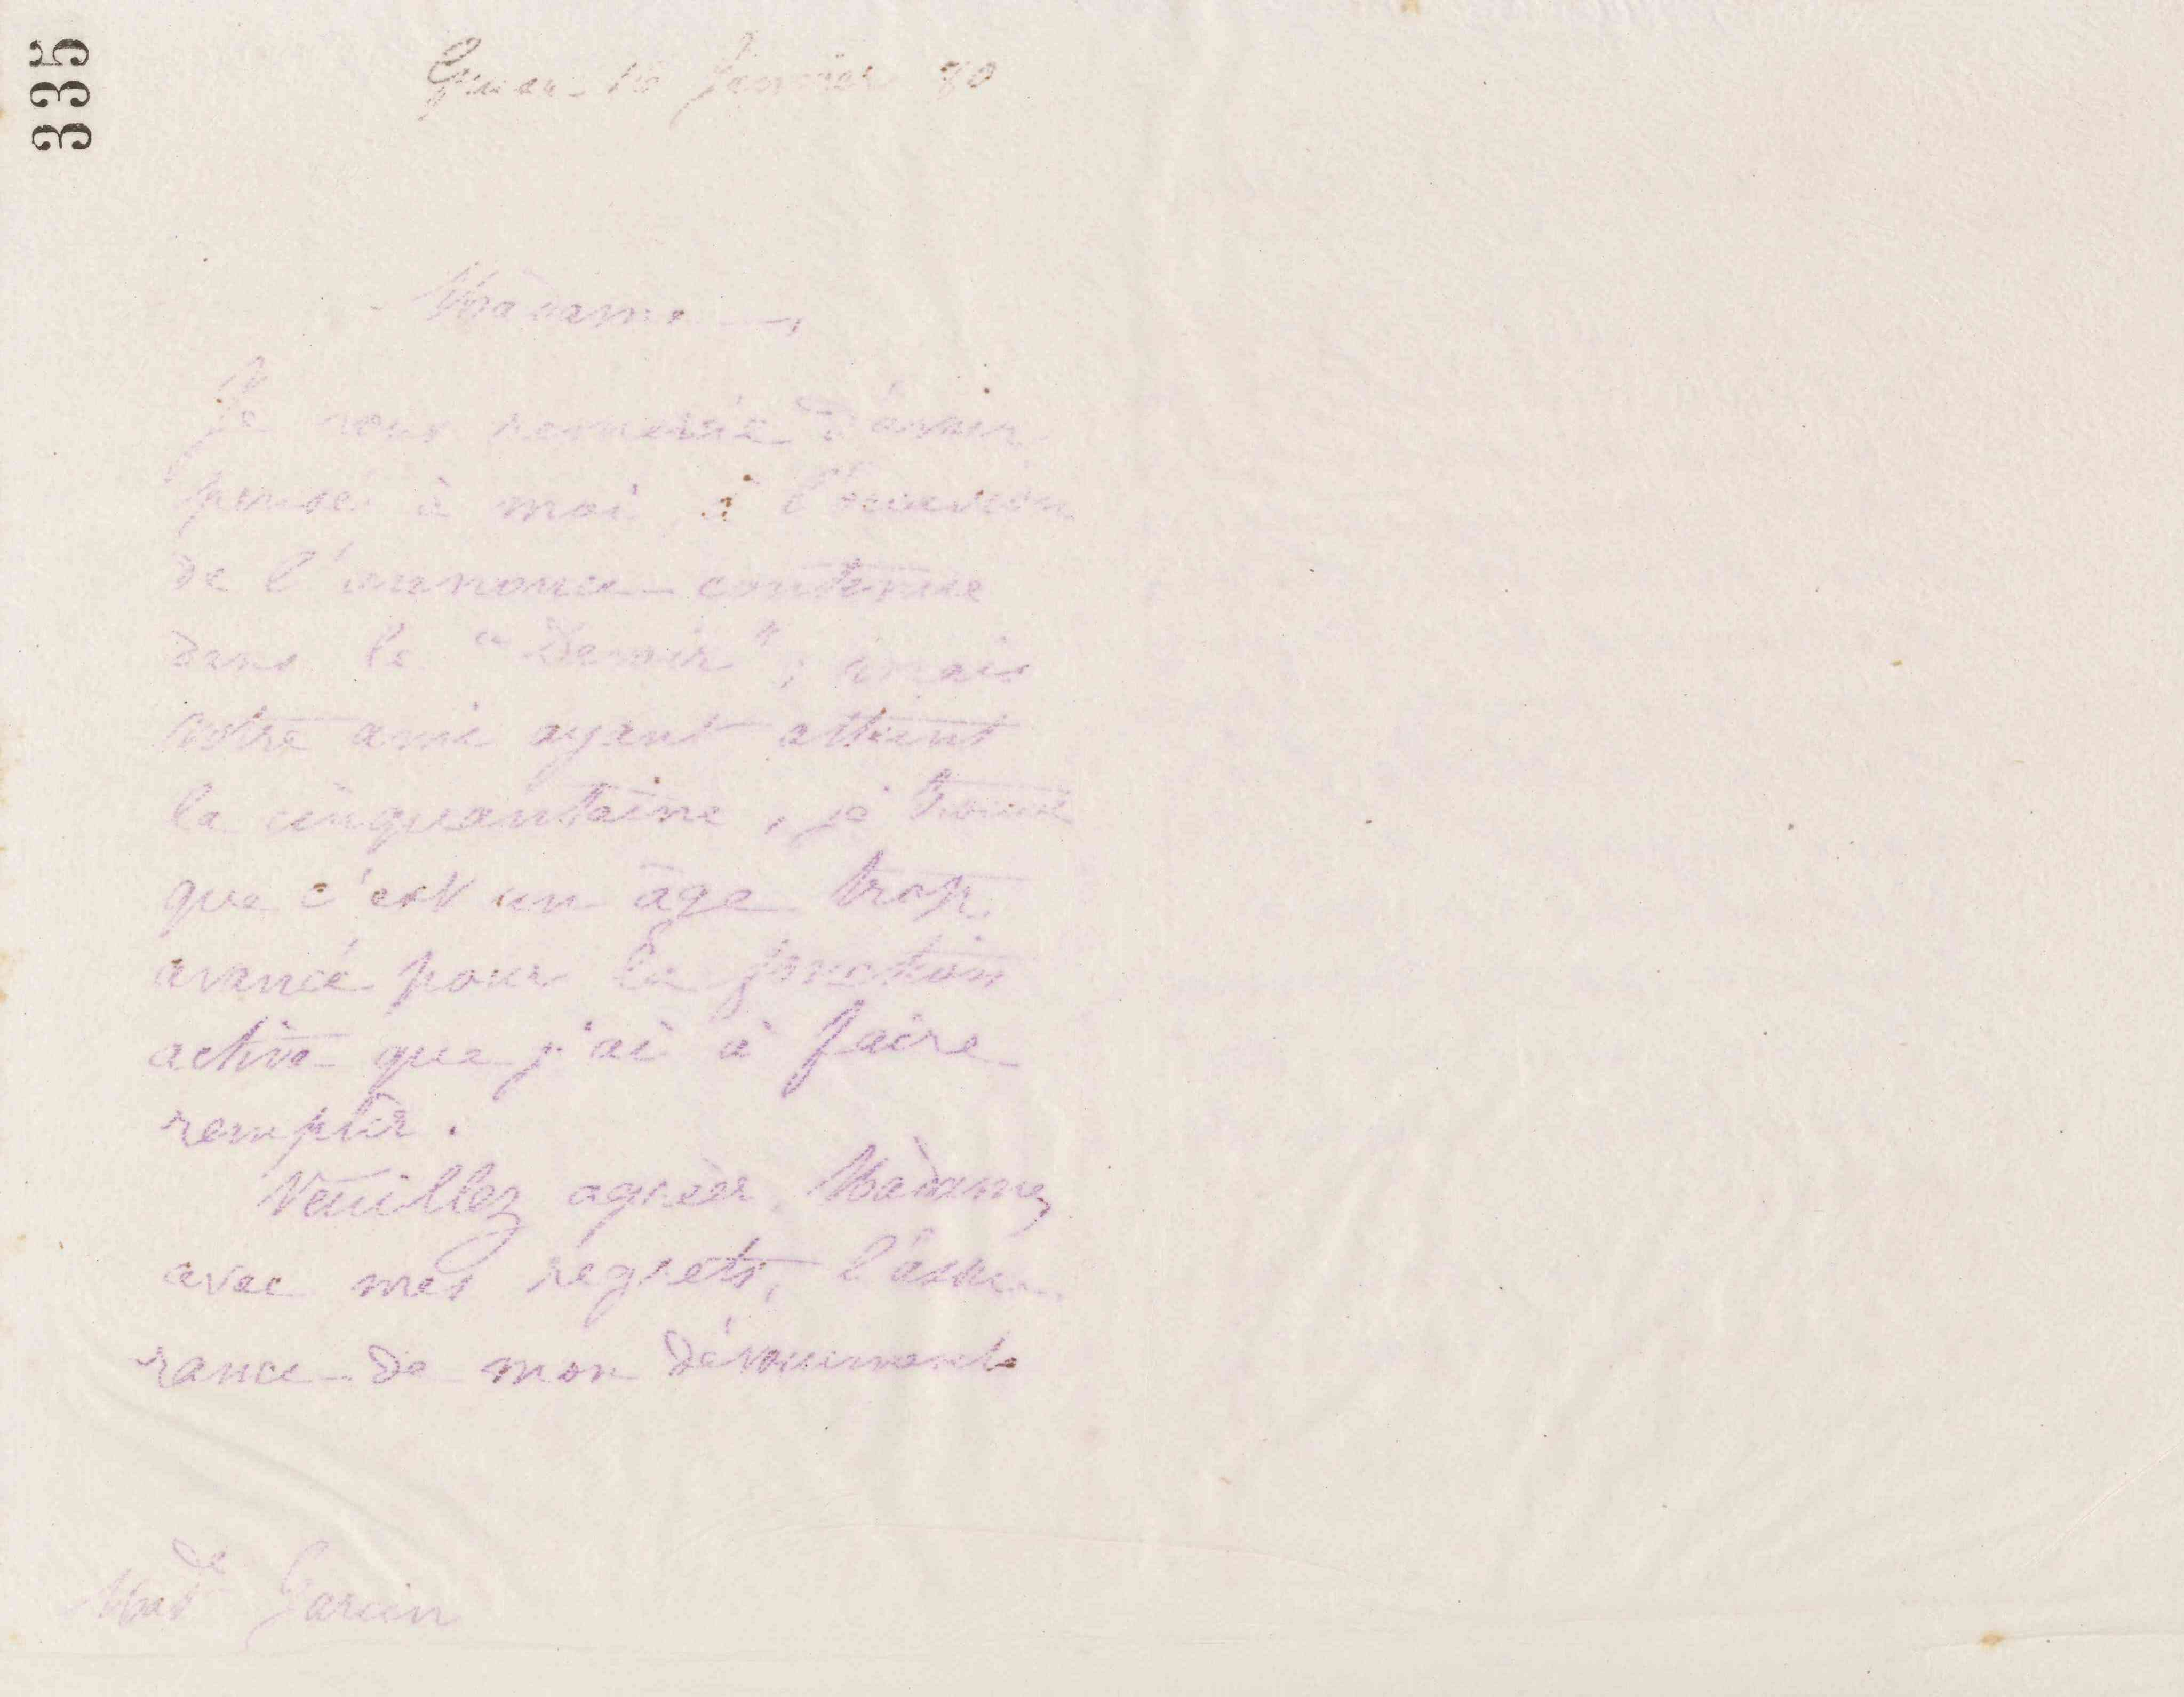 335
Guise 16 Janvier 80
Madame,
Je vous remercie d'avoir
pensé à moi à l'occasion
de l'annonce contenue
dans le "Devoir"; mais
votre amie ayant atteint
la cinquantaine, je trouve
que c'est un âge trop
avancé pour la fonction
active que j'ai à faire
remplir.
Veuillez agréer, Madame,
avec mes regrets, l'assu-
rance de mon dévouement
Mad^e Garcin